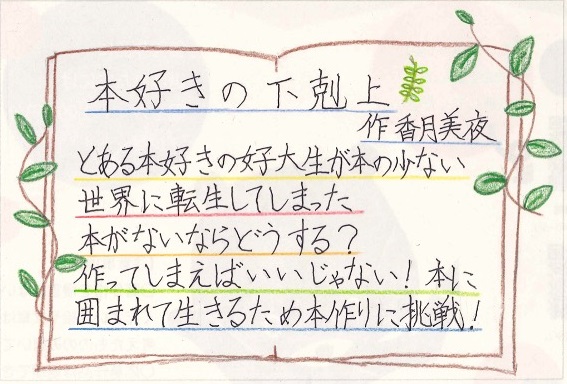 本好きの下剋上
作 香月美夜
とある本好きの女子大生が本の少ない
世界に転生してしまった
本がないならどうする?
作ってしまえばいいじゃない! 本に
囲まれて生きるため本作りに挑戦!